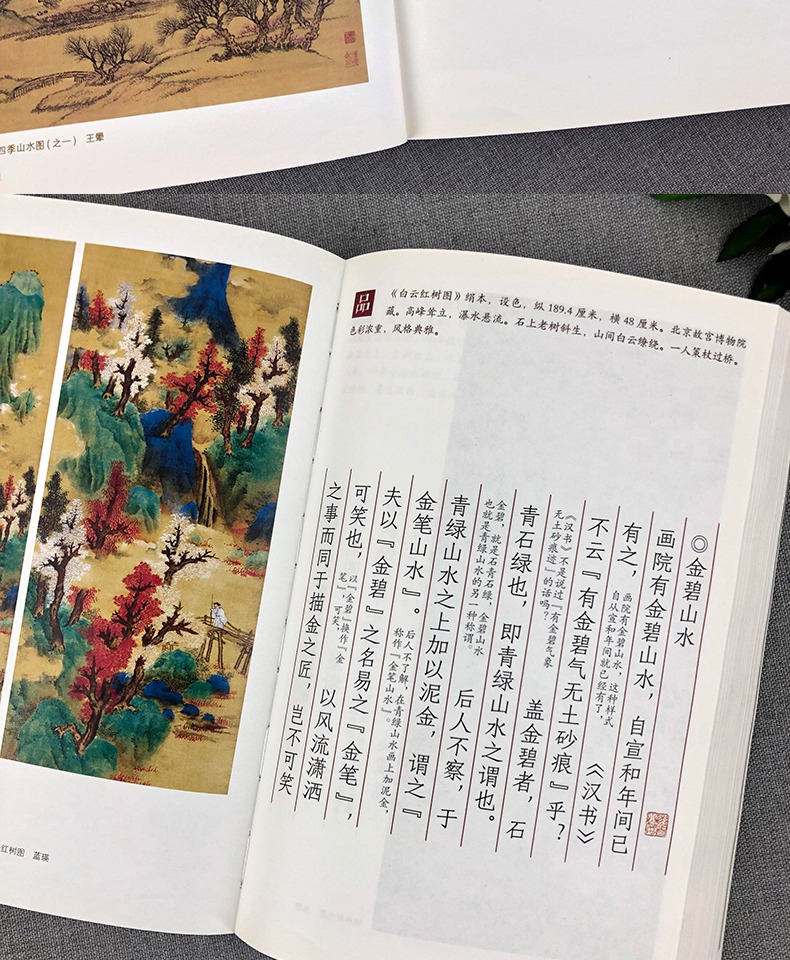 四季山水图(之一) 王翚
品
《白云红树图》绢本，设色，纵 189.4 厘米，横 48 厘米。北京故宫博物院
藏。高峰耸立，瀑水悬流。石上老树斜生，山间白云缭绕。一人策杖过桥。
色彩浓重，风格典雅。
◎金碧山水
画院有金碧山水，自宣和年间已
有之，
画院有金碧山水，这种样式
自从宣和年间就已经有了，
《汉书》
不云『有金碧气无土砂痕』乎？
《汉书》不是说过『有金碧气象
无土砂痕迹』的话吗？
盖金碧者，石
青石绿也，即青绿山水之谓也。
金碧，就是石青石绿，金碧山水
也就是青绿山水的另一种称谓。
后人不察，于
青绿山水之上加以泥金，谓之『
金笔山水』。
后人不了解，在青绿山水画上加泥金，
称作『金笔山水』。
夫以『金碧』之名易之『金笔』，
可笑也，
以『金碧』换作『金
笔』，可笑，
以风流潇洒
之事而同于描金之匠，岂不可笑
红树图 蓝瑛